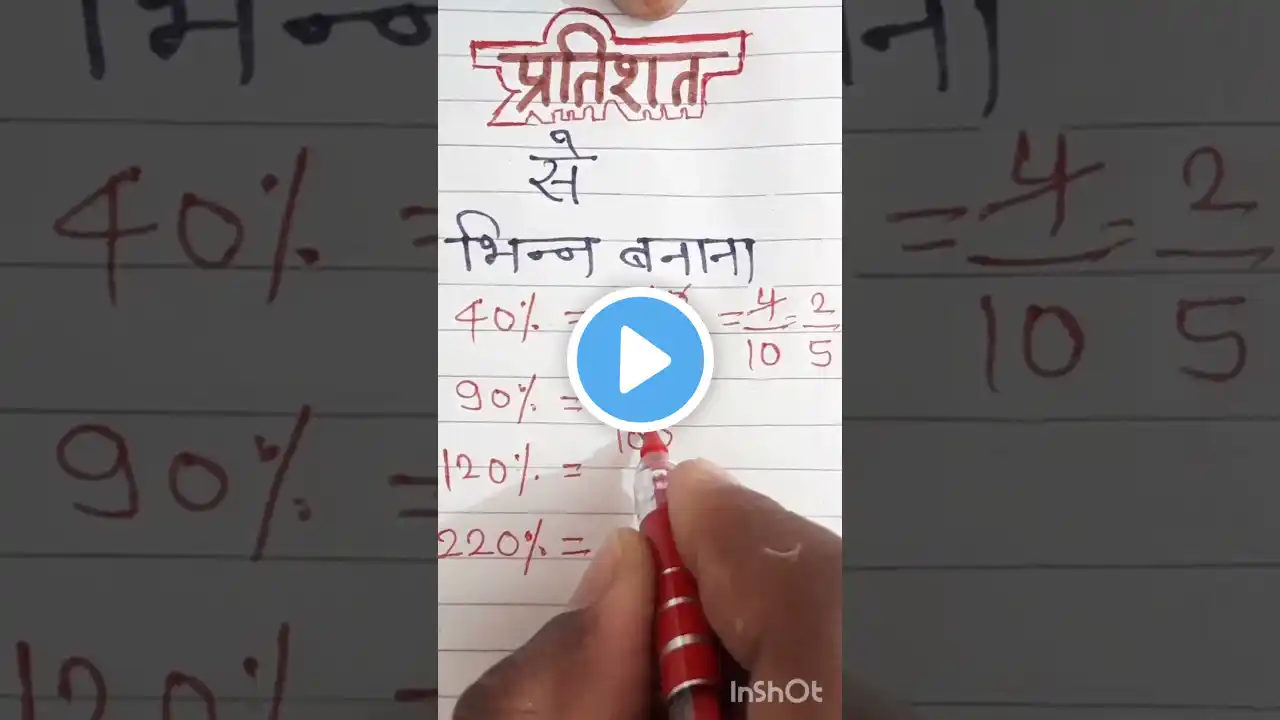 प्रतिशत
से
भिन्न बनाना
40% = = 4/10 = 2/5
90% = 100
120% =
220% =
InShOt